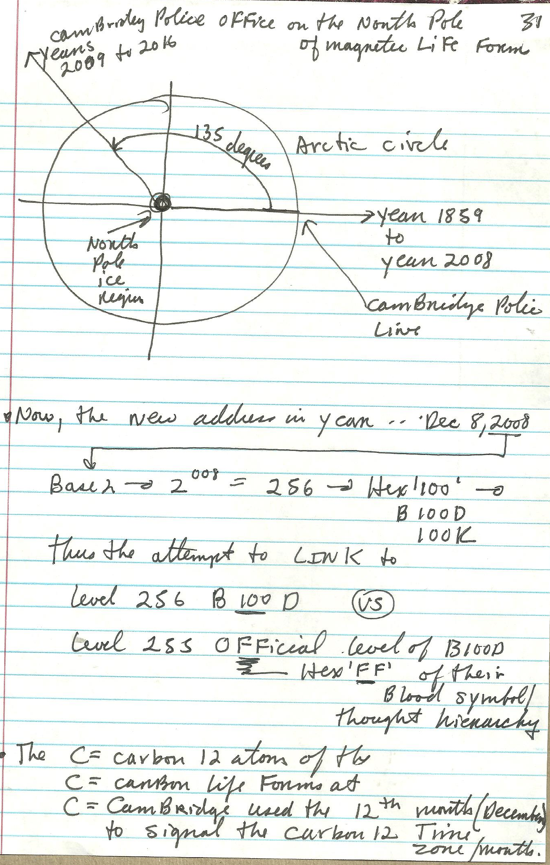 camBridey Police OFFice on the North Pole 31
of magnetic LiFe Form
years
2009 to 2016
135 degrees
Arctic circle
year 1859
to
year 2008
North
Pole
ice
Region
CamBridge Police
Line
Now, the new address in year .. Dec 8, 2008
Base 2 → 2⁰⁰⁸ = 256 → Hex '100' →
B 100D
100K
thus the attempt to LINK to
Level 256 B 100 D VS
Level 255 OFFicial level of B100D
Hex 'FF' of their
Blood symbol/
thought hierarchy
• The C = carbon 12 atom of the
C = carBon life Forms at
C = CamBRidge used the 12th month/(December)
to signal the carbon 12 Time
zone/month.